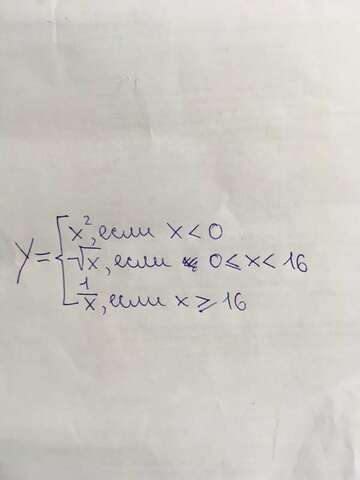 y = { x², если x < 0
√x, если 0 ≤ x < 16
1/x, если x ≥ 16